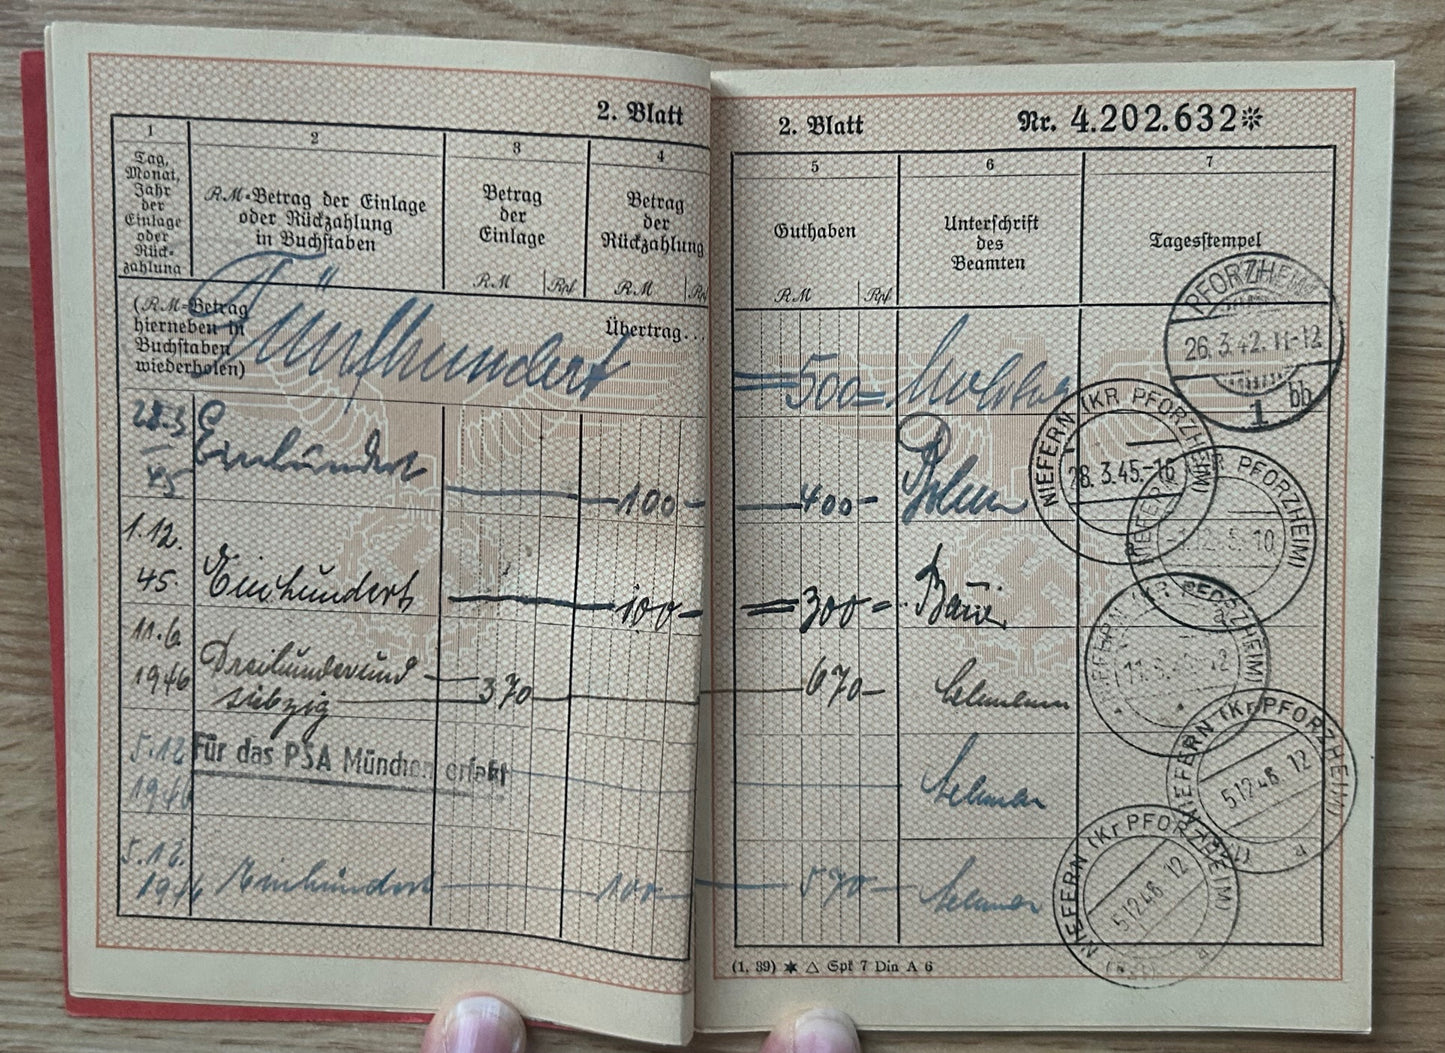 2. Blatt
1
2
3
4
Tag,
Monat,
Jahr
der
Einlage
oder
Rück-
zahlung
RM-Betrag der Einlage
oder Rückzahlung
in Buchstaben
Betrag
der
Einlage
RM Rpf
Betrag
der
Rückzahlung
RM Rpf
(RM-Betrag
hierneben in
Buchstaben
wiederholen)
Fünfhundert
Übertrag..
28.3
45
Einhundert
100-
1.12.
45.
Einhundert
100-
11.6
1946
Dreihundertund
siebzig
370
5.12
1946
Für das PSA München erfaßt
5.12.
1946
Einhundert
100-
2. Blatt
Nr. 4.202.632
5
6
7
Guthaben
RM Rpf
Unterschrift
des
Beamten
Tagesstempel
500-
PFORZHEIM
26.3.42.11-12
1 bb
400-
NIEFERN (KR PFORZHEIM)
28.3.45.-16
300-
Bauer
NIEFERN (KR PFORZHEIM)
670-
NIEFERN (KR PFORZHEIM)
NIEFERN (Kr PFORZHEIM)
5.12.46 12
570-
NIEFERN (Kr PFORZHEIM)
5.12.46 12
(1, 39) ✶ △ Spf 7 Din A 6